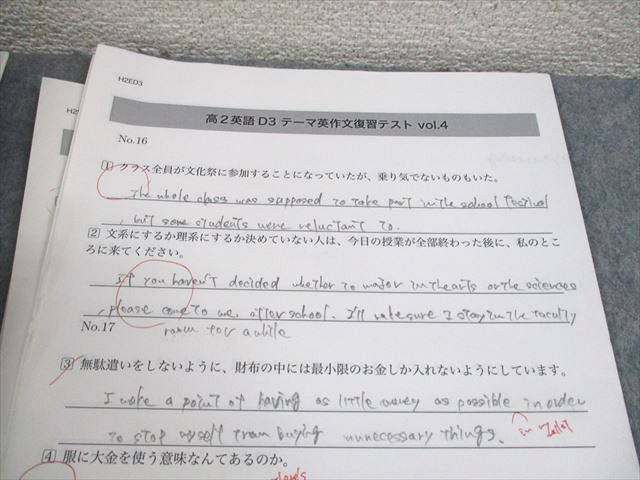 H2ED3
高2英語 D3 テーマ英作文復習テスト vol.4
No.16
1 クラス全員が文化祭に参加することになっていたが、乗り気でないものもいた。
The whole class was supposed to take part in the school festival
, but some students were reluctant to.
2 文系にするか理系にするか決めていない人は、今日の授業が全部終わった後に、私のとこ
ろに来てください。
If you haven't decided whether to major in the arts or the sciences
, please come to me after school. I'll make sure I stay in the faculty
room for a while
No.17
3 無駄遣いをしないように、財布の中には最小限のお金しか入れないようにしています。
I make a point of having as little money as possible in order
to stop myself from buying unnecessary things.
in
4 服に大金を使う意味なんてあるのか。